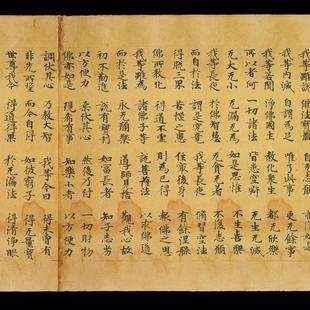 我等内滅 自謂為足 唯了此事 更无餘事
我等若聞 淨佛國土 教化衆生 都无欣樂
所以者何 一切諸法 皆悉空寂 无生无滅
无大无小 无漏无為 如是思惟 不生喜樂
我等長夜 於佛智慧 无貪无著 无復志願
而自於法 謂是究竟 我等長夜 脩習空法
得脫三界 苦惱之患 住最後身 有餘涅槃
佛所教化 得道不虛 則為已得 報佛之恩
我等雖為 諸佛子等 說菩薩法 以求佛道
而於是法 永无願樂 導師見捨 觀我心故
初不勸進 說有實利 如富長者 知子志劣
以方便力 柔伏其心 然後乃付 一切財物
佛亦如是 現希有事 知樂小者 以方便力
調伏其心 乃教大智 我等今日 得未曾有
非先所望 而今自得 如彼窮子 得无量寶
世尊我今 得道得果 於无漏法 得清淨眼